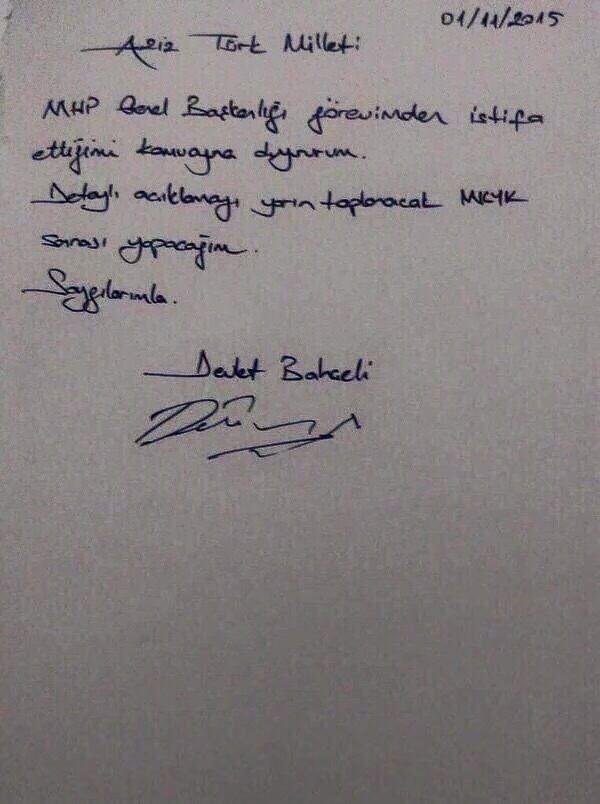 01/11/2015
Aziz Türk Milleti
MHP Genel Başkanlığı görevimden istifa
ettiğimi kamuoyna duyururum.
Detaylı açıklamayı yarın toplanacak MKYK
sonrası yapacağım.
Saygılarımla.
Devlet Bahçeli